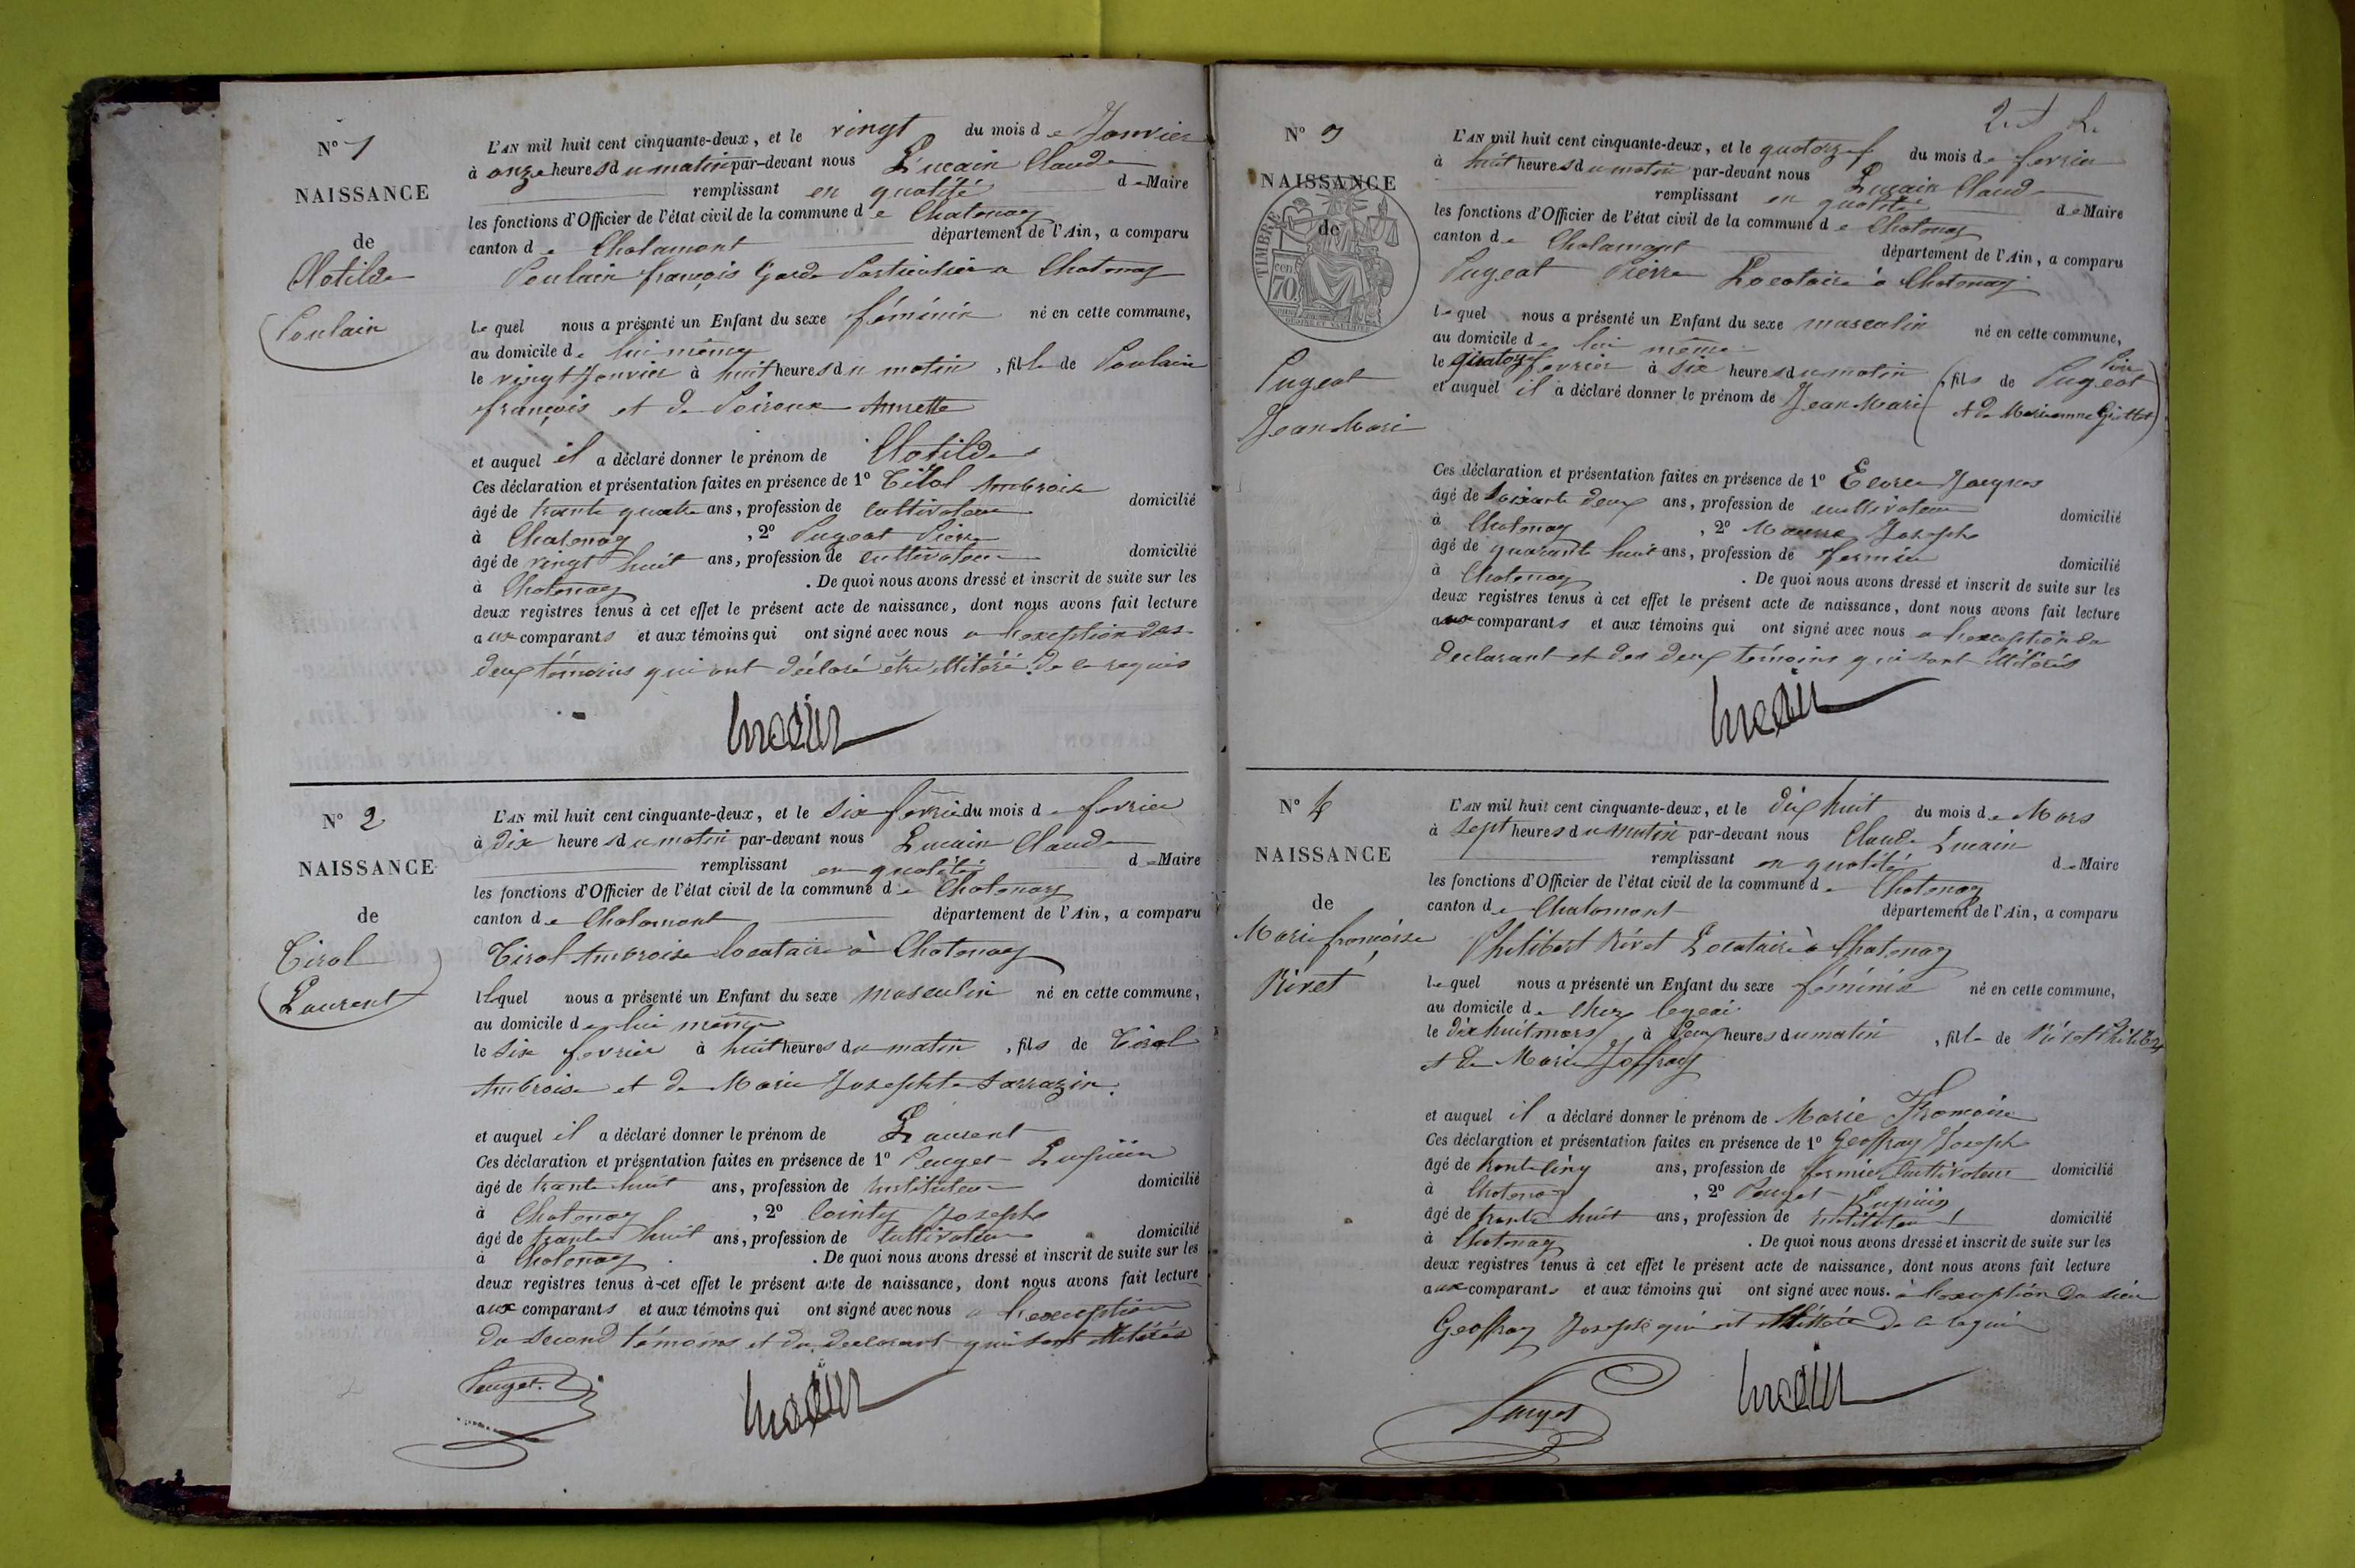 N° 1
NAISSANCE
de
Clotilde
Poulain
L'AN mil huit cent cinquante-deux, et le vingt du mois de Janvier
à onze heures du matin par-devant nous Lucain Claude
remplissant en qualité de Maire
les fonctions d'Officier de l'état civil de la commune de Chatenay
canton de Chalamont département de l'Ain, a comparu
Poulain françois Garde Particulier a Chatenay
lequel nous a présenté un Enfant du sexe féminin né en cette commune,
au domicile de lui même
le vingt Janvier à huit heures du matin, fille de Poulain
françois et de Poiroux Annette
et auquel il a déclaré donner le prénom de Clotilde
Ces déclaration et présentation faites en présence de 1° Tirol Ambroise
âgé de trente quatre ans, profession de cultivateur domicilié
à Chatenay, 2° Pugeat Pierre
âgé de vingt huit ans, profession de cultivateur domicilié
à Chatenay. De quoi nous avons dressé et inscrit de suite sur les
deux registres tenus à cet effet le présent acte de naissance, dont nous avons fait lecture
aux comparants et aux témoins qui ont signé avec nous a l'exception des
deux témoins qui ont déclaré être illitéré de ce requis
Lucain
N° 2
NAISSANCE
de
Tirol
Laurent
L'AN mil huit cent cinquante-deux, et le six fevrier du mois de fevrier
à dix heures du matin par-devant nous Lucain Claude
remplissant en qualité de Maire
les fonctions d'Officier de l'état civil de la commune de Chatenay
canton de Chalamont département de l'Ain, a comparu
Tirol Ambroise locataire à Chatenay
lequel nous a présenté un Enfant du sexe masculin né en cette commune,
au domicile de lui même
le six fevrier à huit heures du matin, fils de Tirol
Ambroise et de Marie Josephte Sarrazin.
et auquel il a déclaré donner le prénom de Laurent
Ces déclaration et présentation faites en présence de 1° Peuget
âgé de trente huit ans, profession de instituteur domicilié
à Chatenay, 2° Cointy Joseph
âgé de trante huit ans, profession de cultivateur domicilié
à Chatenay. De quoi nous avons dressé et inscrit de suite sur les
deux registres tenus à cet effet le présent acte de naissance, dont nous avons fait lecture
aux comparants et aux témoins qui ont signé avec nous a l'exception
du second témoins et du declarant qui sont illitérés
Peuget
Lucain
2.
N° 3
NAISSANCE
de
TIMBRE
cent
70
Pugeat
Jean Marie
L'AN mil huit cent cinquante-deux, et le quatorze du mois de fevrier
à huit heures du matin par-devant nous Lucain Claude
remplissant en qualité de Maire
les fonctions d'Officier de l'état civil de la commune de Chatenay
canton de Chalamont département de l'Ain, a comparu
Pugeat Pierre Locataire à Chatenay
lequel nous a présenté un Enfant du sexe masculin né en cette commune,
au domicile de lui même
le quatorze fevrier à six heures du matin, fils de Pugeat
et auquel il a déclaré donner le prénom de Jean Marie et de Marianne
Ces déclaration et présentation faites en présence de 1° Jacques
âgé de soixante deux ans, profession de cultivateur domicilié
à Chatenay, 2° Joseph
âgé de quarante huit ans, profession de fermier domicilié
à Chatenay. De quoi nous avons dressé et inscrit de suite sur les
deux registres tenus à cet effet le présent acte de naissance, dont nous avons fait lecture
aux comparants et aux témoins qui ont signé avec nous a l'exception du
declarant et des deux témoins qui sont illitérés
Lucain
N° 4
NAISSANCE
de
Marie françoise
Rivet
L'AN mil huit cent cinquante-deux, et le dix huit du mois de Mars
à sept heures du matin par-devant nous Claude Lucain
remplissant en qualité de Maire
les fonctions d'Officier de l'état civil de la commune de Chatenay
canton de Chalamont département de l'Ain, a comparu
Philibert Rivet Locataire à Chatenay
lequel nous a présenté un Enfant du sexe féminin né en cette commune,
au domicile de chez
le dix huit mars à deux heures du matin, fille de Rivet Philibert
et de Marie Joffray
et auquel il a déclaré donner le prénom de Marie Françoise
Ces déclaration et présentation faites en présence de 1° Geoffray Joseph
âgé de trente cinq ans, profession de fermier Cultivateur domicilié
à Chatenay, 2° Peuget
âgé de trente huit ans, profession de instituteur domicilié
à Chatenay. De quoi nous avons dressé et inscrit de suite sur les
deux registres tenus à cet effet le présent acte de naissance, dont nous avons fait lecture
aux comparants et aux témoins qui ont signé avec nous. à l'exception du sieur
Geoffray Joseph qui est illitéré de ce requis
Peuget
Lucain